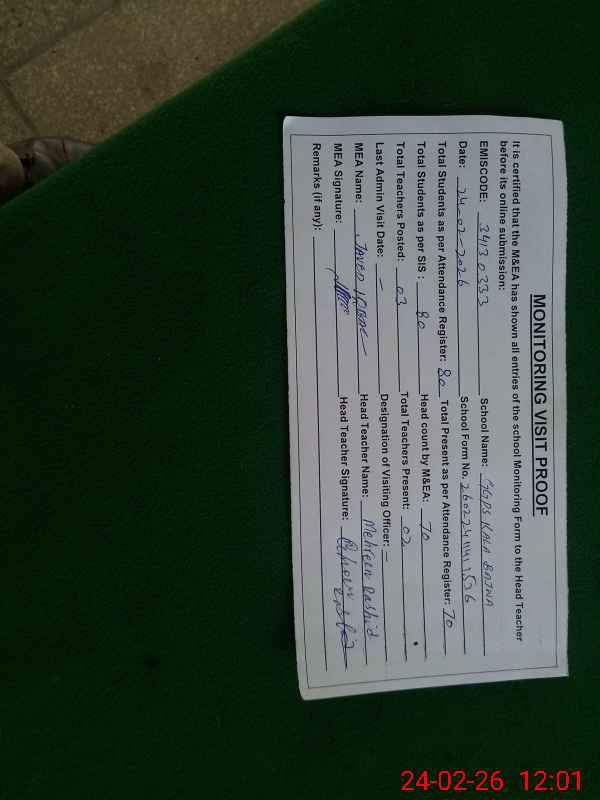 MONITORING VISIT PROOF
It is certified that the M&EA has shown all entries of the school Monitoring Form to the Head Teacher
before its online submission:
EMISCODE: 34130333 School Name: GGPS KALA
Date: 24-02-2026 School Form No.
Total Students as per Attendance Register: 80 Total Present as per Attendance Register: 70
Total Students as per SIS : 80 Head count by M&EA: 70
Total Teachers Posted: 03 Total Teachers Present: 02
Last Admin Visit Date: – Designation of Visiting Officer: –
MEA Name: JAVED IQBAL Head Teacher Name: Mehreen Rashid
MEA Signature: Head Teacher Signature:
Remarks (if any):
24-02-26 12:01